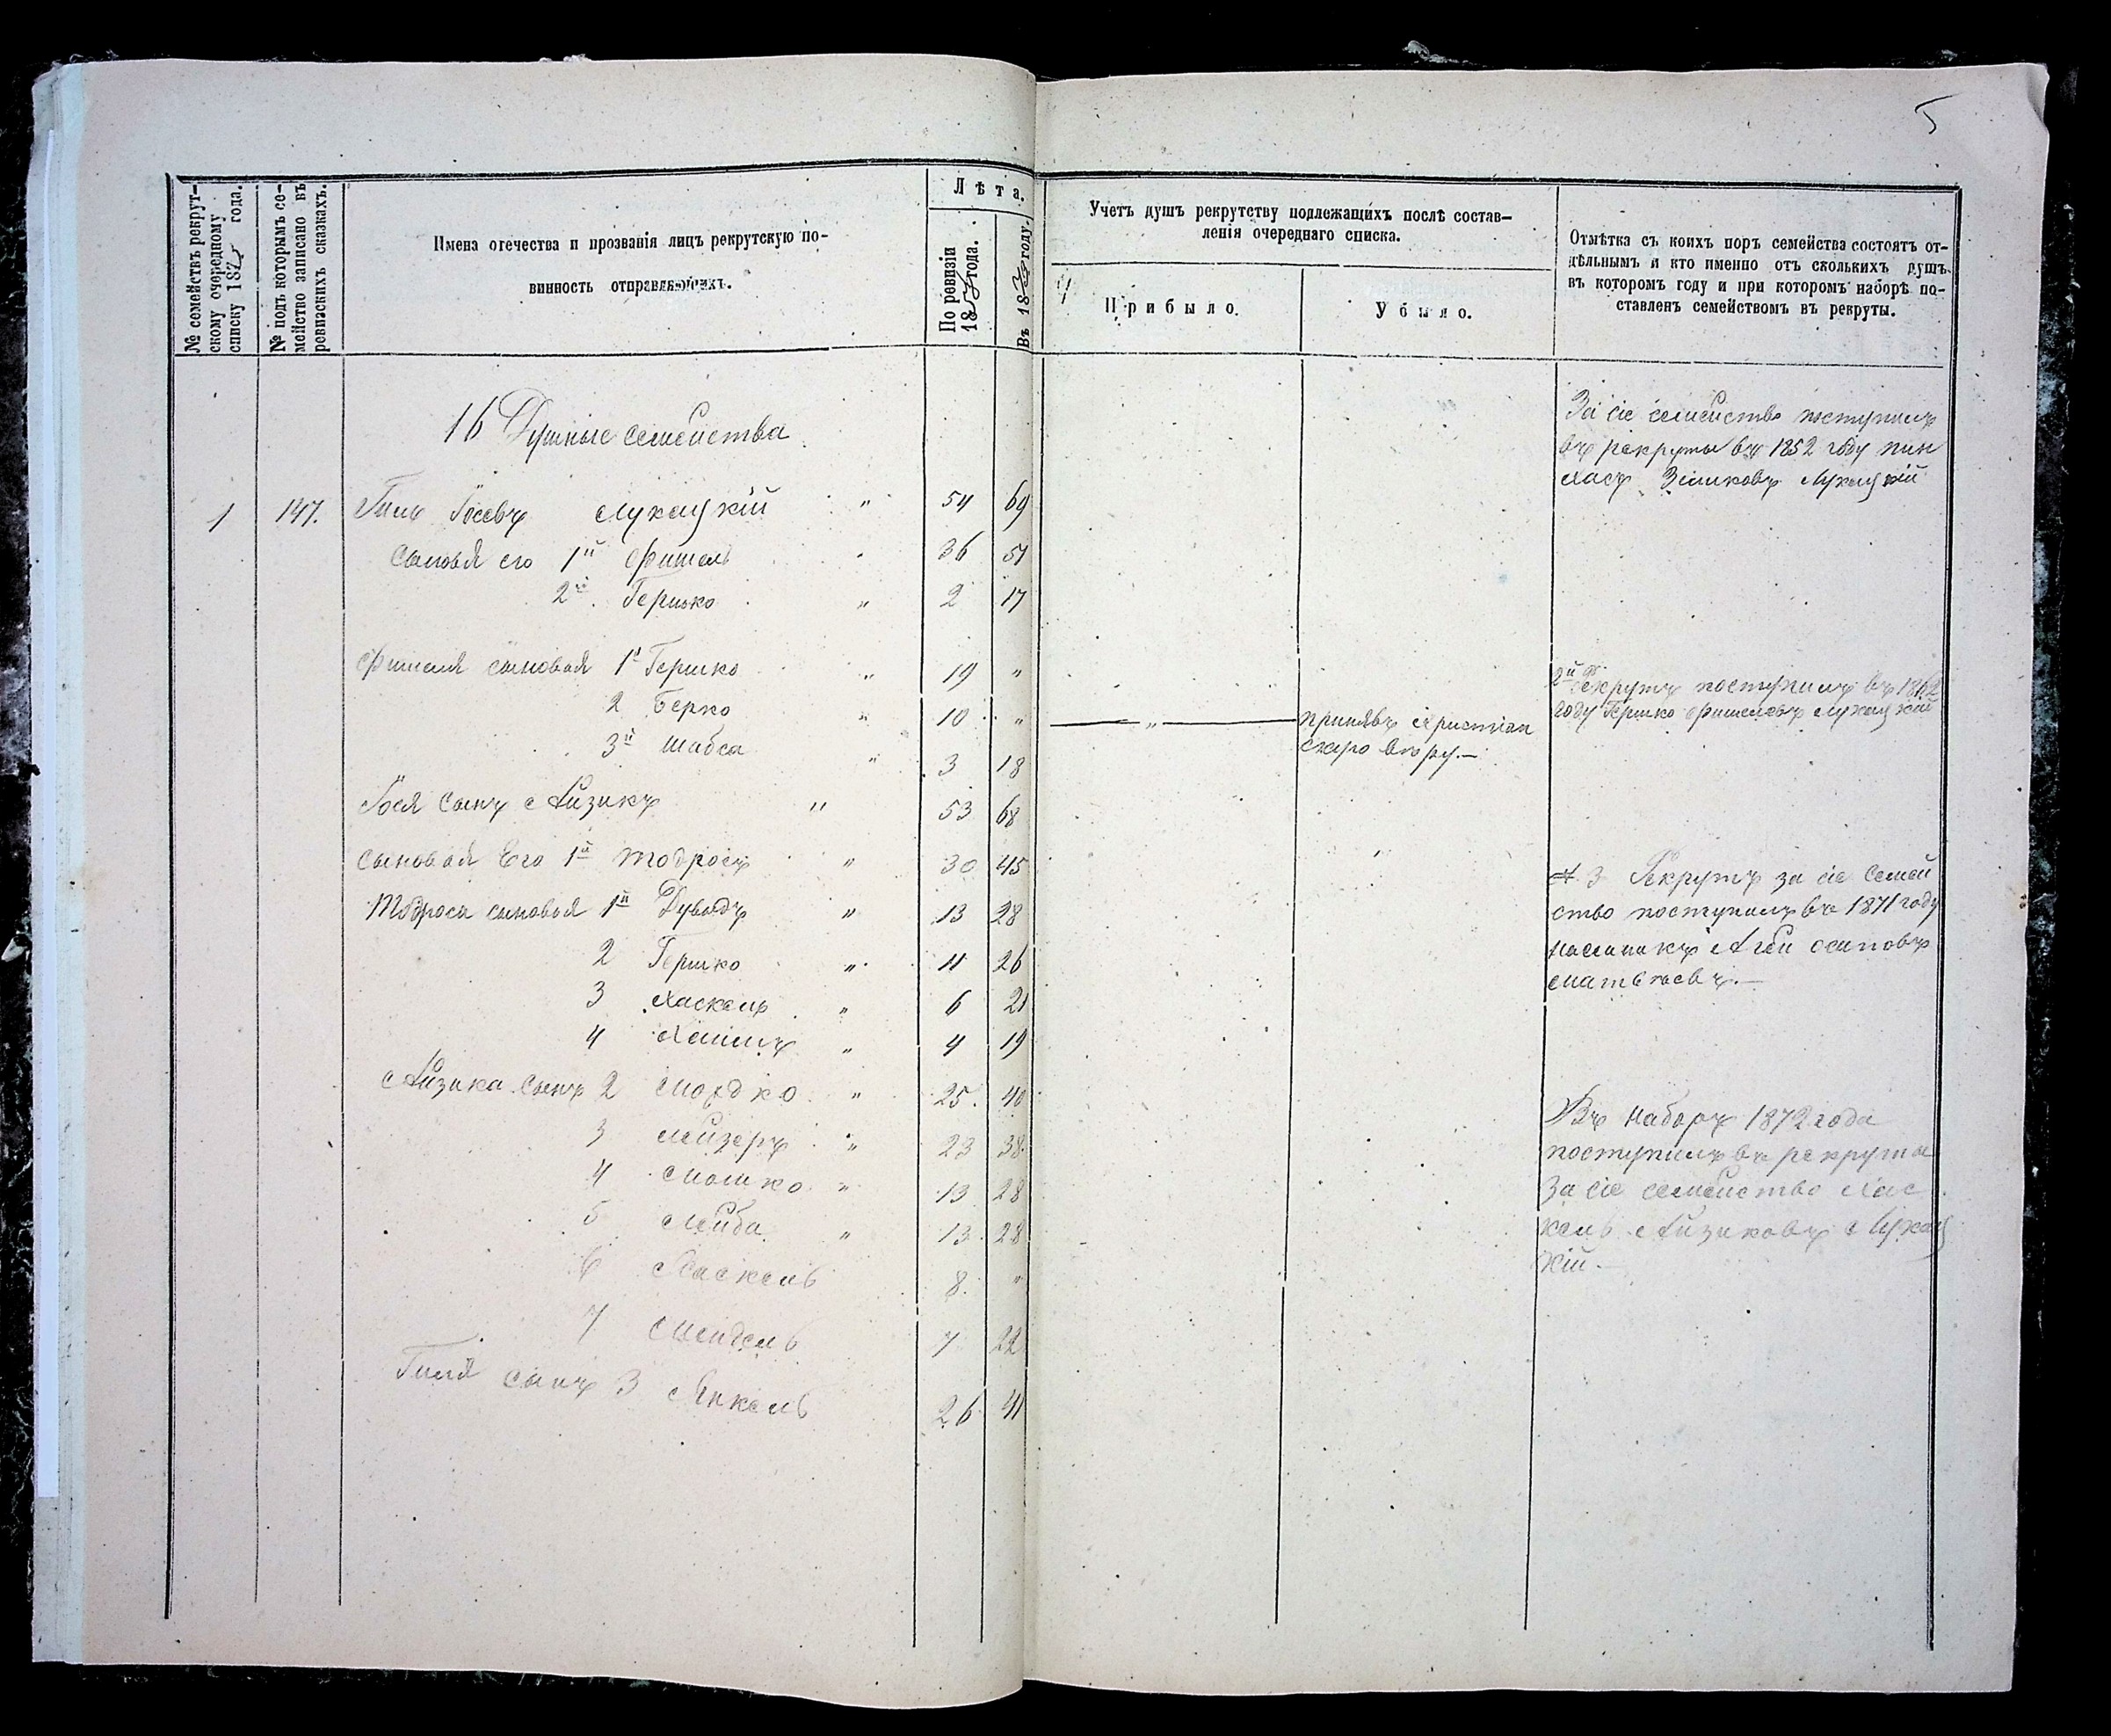 5
№ семействъ рекрут-
скому очередному
списку 187 года.
№ подъ которымъ се-
мейство записано въ
ревизскихъ сказкахъ.
Имена отечества и прозванія лицъ рекрутскую по-
винность отправляющихъ.
Лѣта.
По ревизіи
185 года.
Въ 187 году.
Учетъ душъ рекрутству подлежащихъ послѣ состав-
ленія очереднаго списка.
Прибыло.
Убыло.
Отмѣтка съ коихъ поръ семейства состоятъ от-
дѣльнымъ и кто именно отъ сколькихъ душъ
въ которомъ году и при которомъ наборѣ по-
ставленъ семействомъ въ рекруты.
16 Душные семейства
За сіе семейство поступилъ
въ рекруты въ 1852 году Пин
хасъ Лукацкій
1 147. Гиль Іосевъ Лукацкій " 54 69
Сыновья его 1й Фишель 36 51
2й Гершко " 2 17
Фишеля сыновья 1й Гершко " 19 "
2 Берко " 10 "
3й Шабса " 3 18
" принявъ христіан
скую вѣру.—
2й Рекрутъ поступилъ въ 1862
году Гершко Фишелевъ Лукацкій
Іося сынъ Айзикъ " 53 68
Сыновья Его 1й Тодросъ " 30 45
Тодроса сыновья 1й Дувидъ " 13 28
2 Гершко " 11 26
3 Хаскель " 6 21
4 " 4 19
3 Рекрутъ за сіе Семей
ство поступилъ въ 1871 году
Осиповъ
Матвѣевъ.—
Айзика сынъ 2 Мордко " 25 40
3 Лейзеръ " 23 38
4 Мошко " 13 28
5 Лейба " 13 28
6 Хаскель 8 "
7 Мендель 7 22
Гиля сынъ 3 Янкель 26 41
Въ наборъ 1872 года
поступилъ въ рекруты
за сіе семейство Хас
кель Айзиковъ Лукац
кій.—